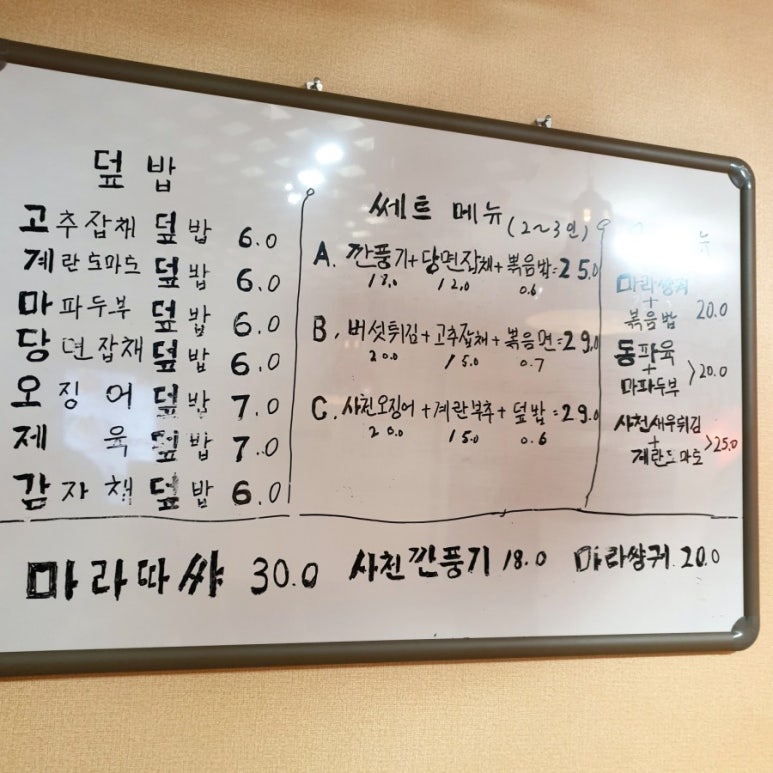 덮밥
고추잡채 덮밥 6.0
계란도마도 덮밥 6.0
마파두부 덮밥 6.0
당면잡채 덮밥 6.0
오징어 덮밥 7.0
제육 덮밥 7.0
감자채 덮밥 6.0
쎄트 메뉴 (2~3인)
A. 깐풍기+당면잡채+볶음밥=25.0
18.0 12.0 0.6
B. 버섯튀김+고추잡채+볶음면=29.0
20.0 15.0 0.7
C. 사천오징어+계란부추+덮밥=29.0
20.0 15.0 0.6
뉴
마라썅궈
+
볶음밥 20.0
동파육
+ >20.0
마파두부
사천새우튀김
+ >25.0
계란도마도
마라따샤 30.0 사천깐풍기 18.0 마라썅궈 20.0